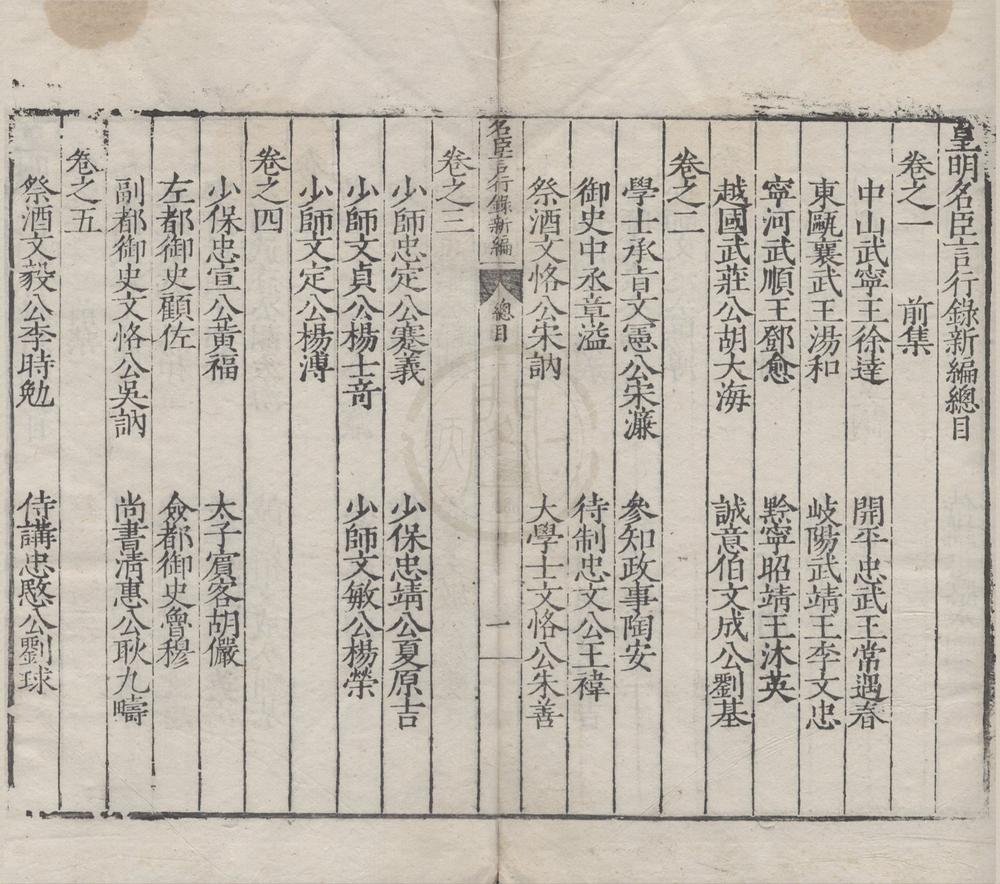 皇明名臣言行錄新編總目
卷之一　前集
中山武寧王徐達　開平忠武王常遇春
東甌襄武王湯和　岐陽武靖王李文忠
寧河武順王鄧愈　黔寧昭靖王沐英
越國武莊公胡大海　誠意伯文成公劉基
卷之二
學士承旨文憲公宋濂　參知政事陶安
御史中丞章溢　待制忠文公王褘
祭酒文恪公宋訥　大學士文恪公朱善
名臣言行錄新編　總目　一
卷之三
少師忠定公蹇義　少保忠靖公夏原吉
少師文貞公楊士竒　少師文敏公楊榮
少師文定公楊溥
卷之四
少保忠宣公黃福　太子賓客胡儼
左都御史顧佐　僉都御史魯穆
副都御史文恪公吳訥　尚書清惠公耿九疇
卷之五
祭酒文毅公李時勉　侍講忠愍公劉球